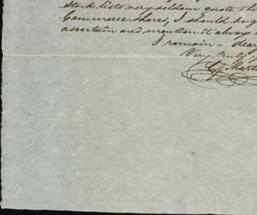 stock lists very seldom quote the
Commerce shares, I should be g
ascertain and mention it always
I remain - dear
Very truly